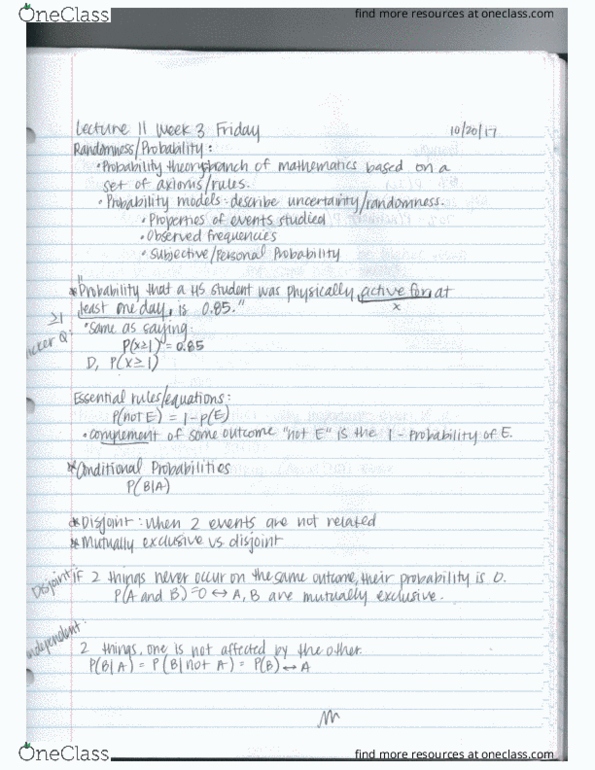 OneClass
find more resources at oneclass.com
Lecture 11 Week 3 Friday 10/20/17
Randomness/Probability:
• Probability theory: branch of mathematics based on a
set of axioms/rules.
• Probability models - describe uncertainty/randomness.
• Properties of events studied
• Observed frequencies
• Subjective/Personal Probability
* "Probability that a HS student was physically active for at
x
least one day, is 0.85."
≥1
icker Q:
• Same as saying:
P(x≥1) = 0.85
D, P(x≥1)
Essential rules/equations:
P(not E) = 1 - P(E)
• complement of some outcome "not E" is the 1 - Probability of E.
* Conditional Probabilities
P(B|A)
* Disjoint: when 2 events are not related
* Mutually exclusive vs disjoint
Disjoint: if 2 things never occur on the same outcome, their probability is 0.
P(A and B) = 0 ↔ A, B are mutually exclusive.
independent:
2 things, one is not affected by the other.
P(B|A) = P(B|not A) = P(B) ↔ A
OneClass
find more resources at oneclass.com